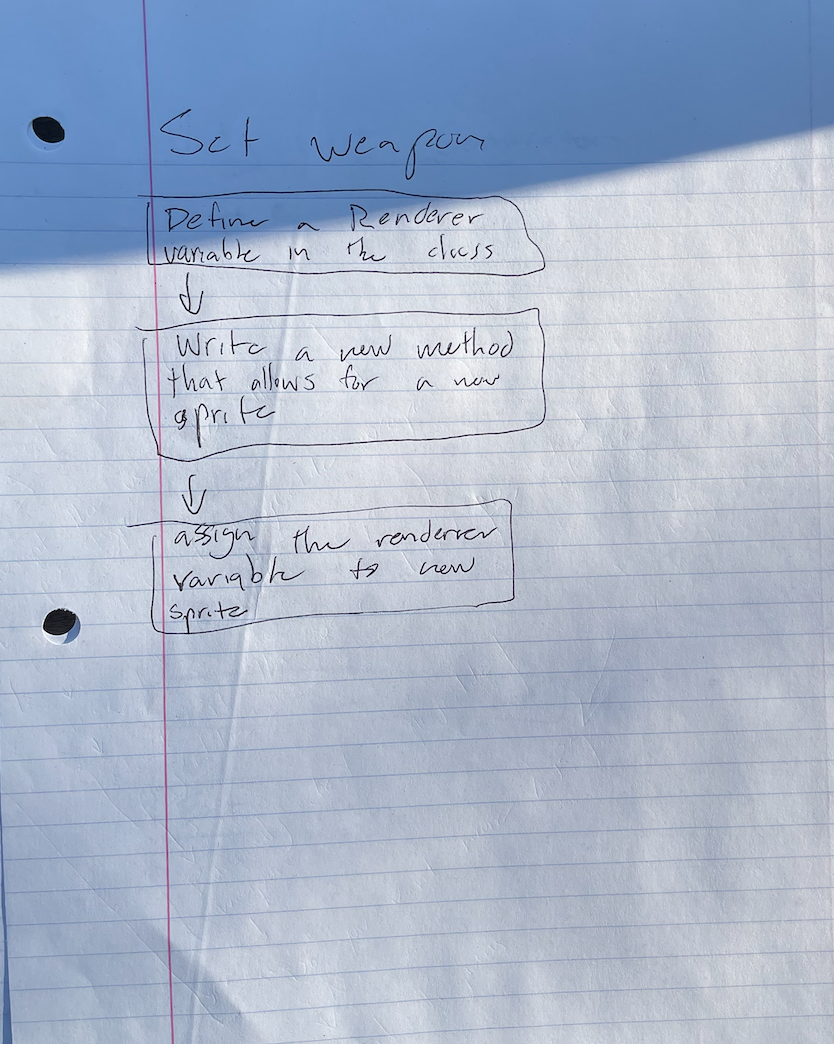 Set weapon
Define a Renderer
variable in the class
Write a new method
that allows for a new
sprite
assign the renderer
variable to new
sprite